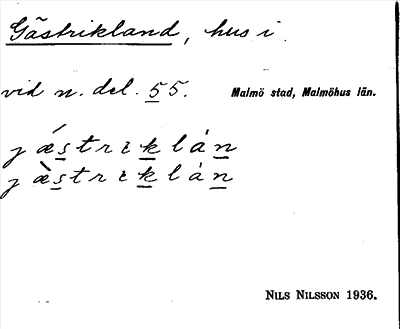 Gästrikland, hus i.
vid n. del. 55. Malmö stad, Malmöhus län.
jǽstriklȧn
jæ̀striklȧn
NILS NILSSON 1936.